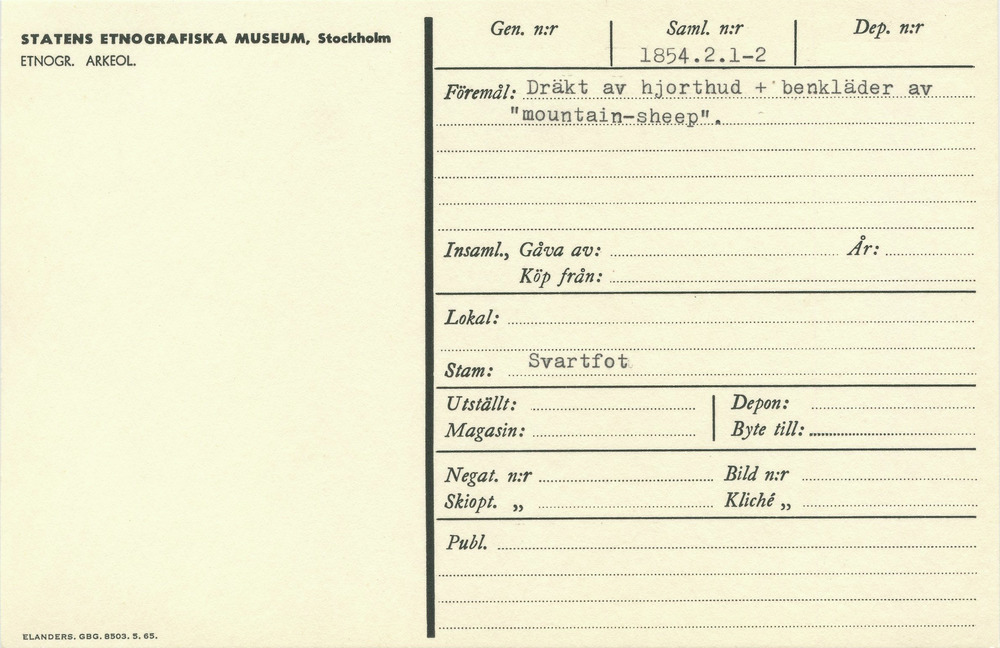 STATENS ETNOGRAFISKA MUSEUM, Stockholm
ETNOGR. ARKEOL.
Gen. n:r
Saml. n:r
Dep. n:r
1854.2.1-2
Föremål: Dräkt av hjorthud + benkläder av
"mountain-sheep".
Insaml., Gåva av:
År:
Köp från:
Lokal:
Stam: Svartfot
Utställt:
Depon:
Magasin:
Byte till:
Negat. n:r
Bild n:r
Skiopt. „
Kliché „
Publ.
ELANDERS. GBG. 8503. 5. 65.